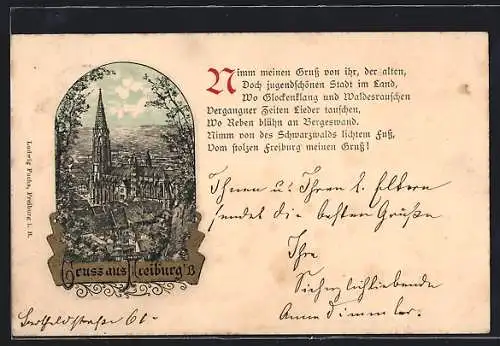 Nimm meinen Gruß von ihr, der alten,
Doch jugendschönen Stadt im Land,
Wo Glockenklang und Waldesrauschen
Vergangner Zeiten Lieder tauschen,
Wo Reben blühn an Bergeswand.
Nimm von des Schwarzwalds lichtem Fuß,
Vom stolzen Freiburg meinen Gruß!
Ludwig Fuchs, Freiburg i. B.
Gruss aus Freiburg i/B
Ihnen u. Ihren l. Eltern
sendet die besten Grüße
Ihre
Sie herzlichliebende
Anna Dimmler.
61